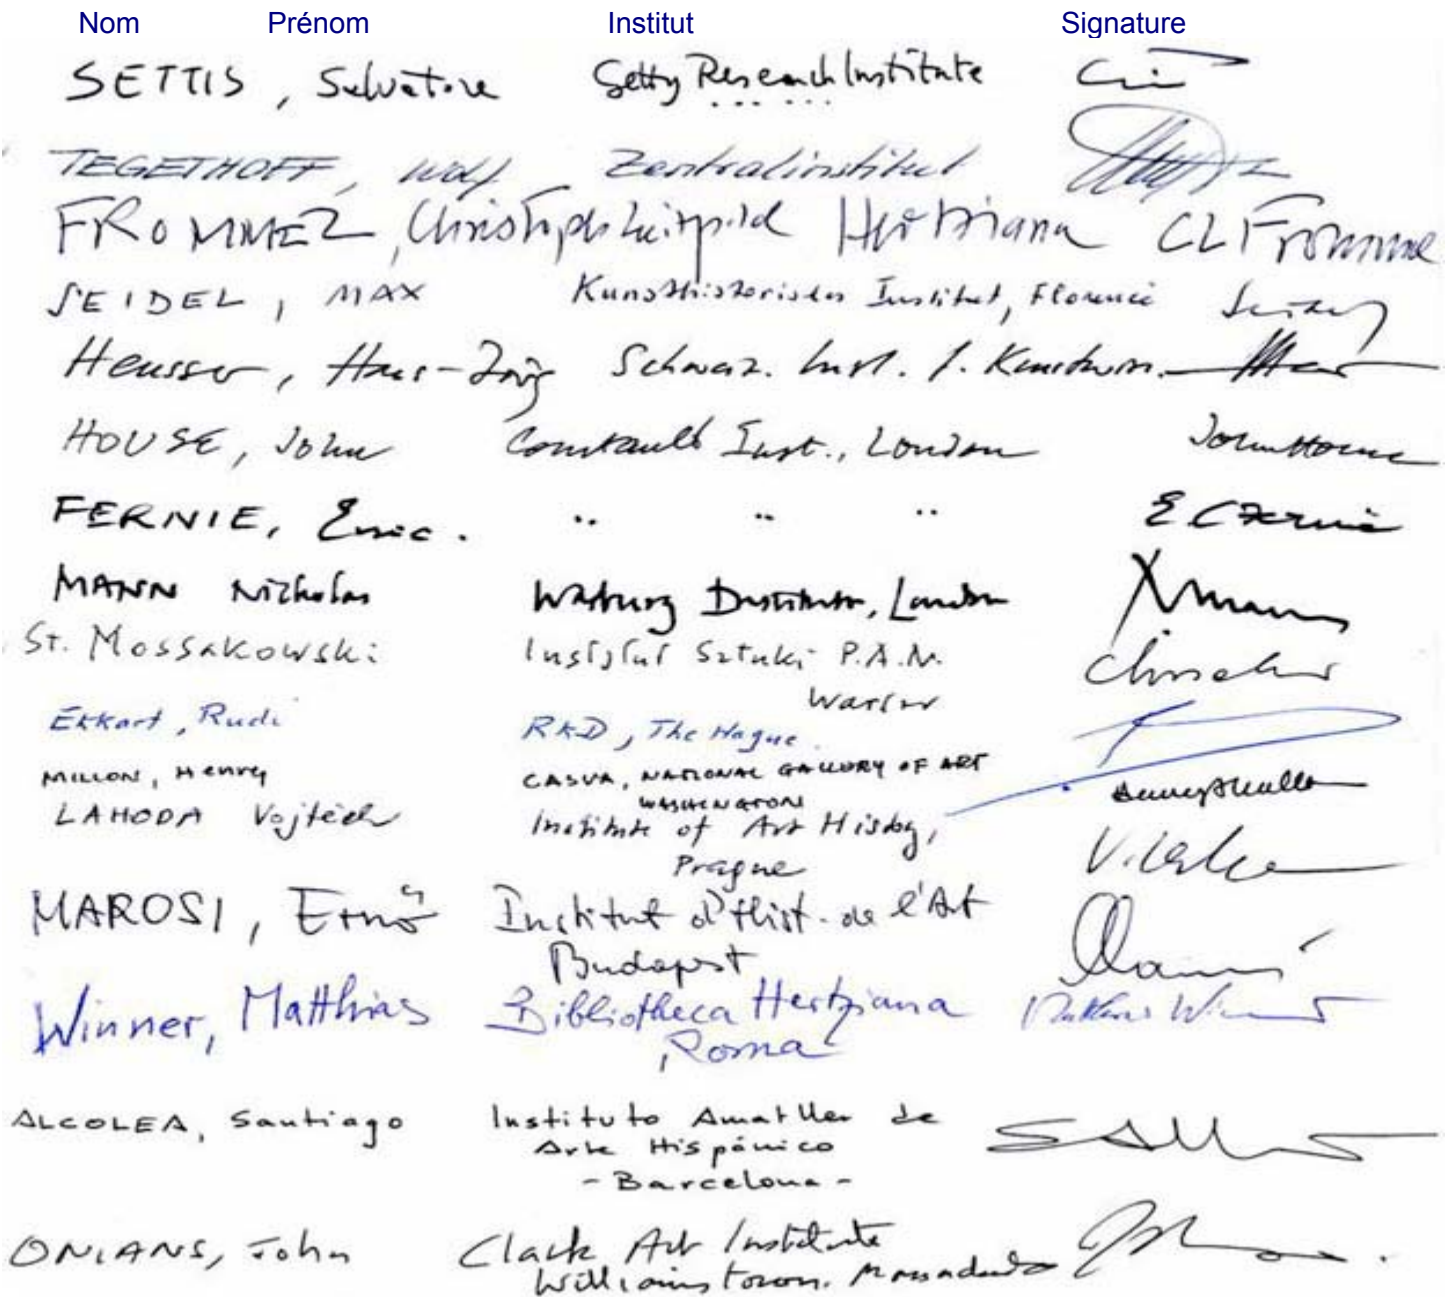 Nom Prénom Institut Signature
SETTIS, Salvatore Getty Research Institute
TEGETHOFF, Wolf Zentralinstitut
FROMMEL, Christoph Luitpold Hertziana CLFrommel
SEIDEL, MAX Kunsthistorisches Institut, Florence Seidel
Heusser, Hans-Jörg Schweiz. Inst. f. Kunstwiss.
HOUSE, John Courtauld Inst., London John House
FERNIE, Eric. " " " E C Fernie
MANN Nicholas Warburg Institute, London NMann
St. Mossakowski Instytut Sztuki P.A.N.
Warsaw
Ekkart, Rudi RKD, The Hague
MILLON, Henry CASVA, NATIONAL GALLERY OF ART
WASHINGTON
LAHODA Vojtěch Institute of Art History,
Prague
MAROSI, Ernő Institut d'Hist. de l'Art
Budapest
Winner, Matthias Bibliotheca Hertziana Matthias Winner
, Roma
ALCOLEA, Santiago Instituto Amatller de
Arte Hispánico
- Barcelona -
ONIANS, John Clark Art Institute
Williamstown.